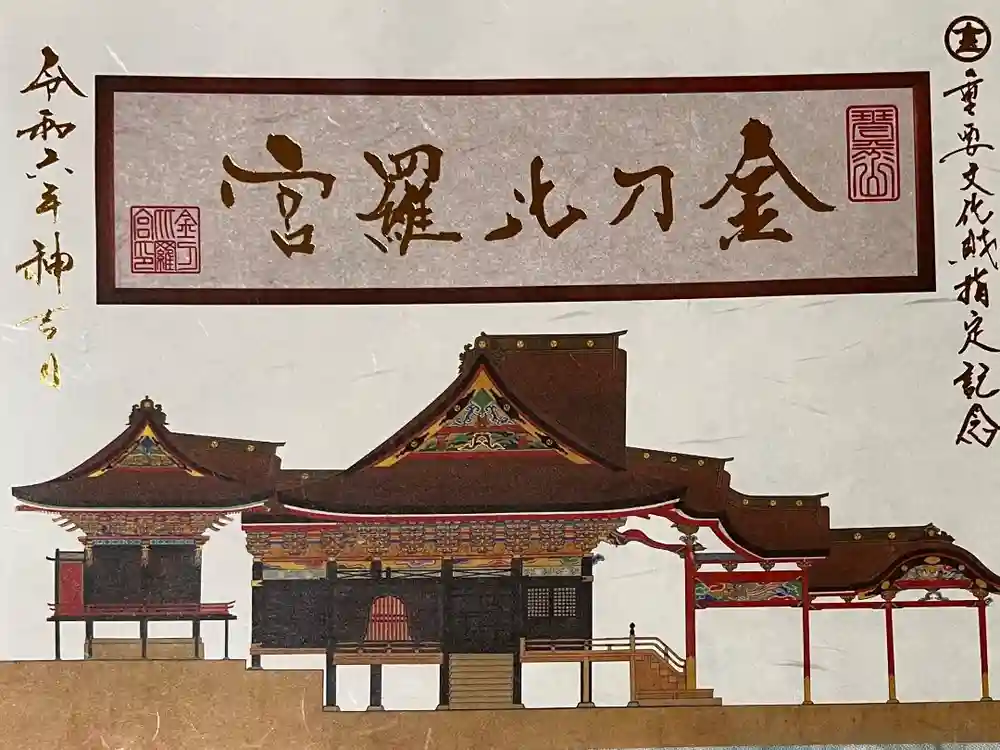 重要文化財指定記念
琴平山
金刀比羅宮
金刀比羅宮印
令和六年神吉日